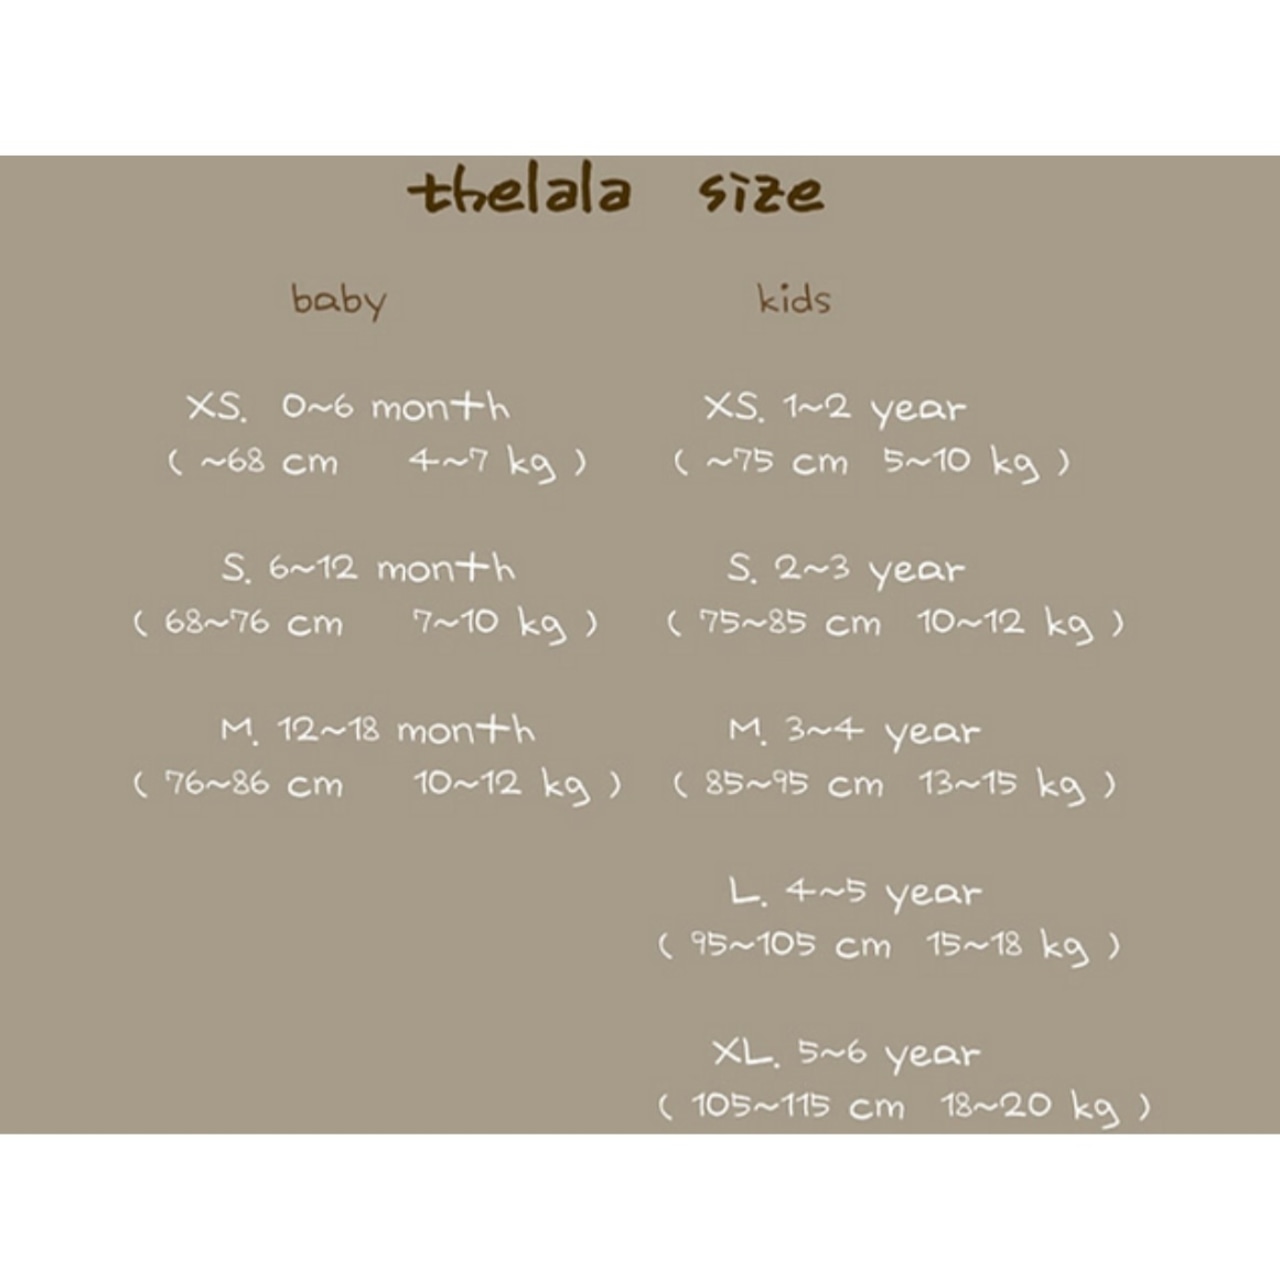 thelala size
baby
XS. 0~6 month
( ~68 cm 4~7 kg )
S. 6~12 month
( 68~76 cm 7~10 kg )
M. 12~18 month
( 76~86 cm 10~12 kg )
kids
XS. 1~2 year
( ~75 cm 5~10 kg )
S. 2~3 year
( 75~85 cm 10~12 kg )
M. 3~4 year
( 85~95 cm 13~15 kg )
L. 4~5 year
( 95~105 cm 15~18 kg )
XL. 5~6 year
( 105~115 cm 18~20 kg )